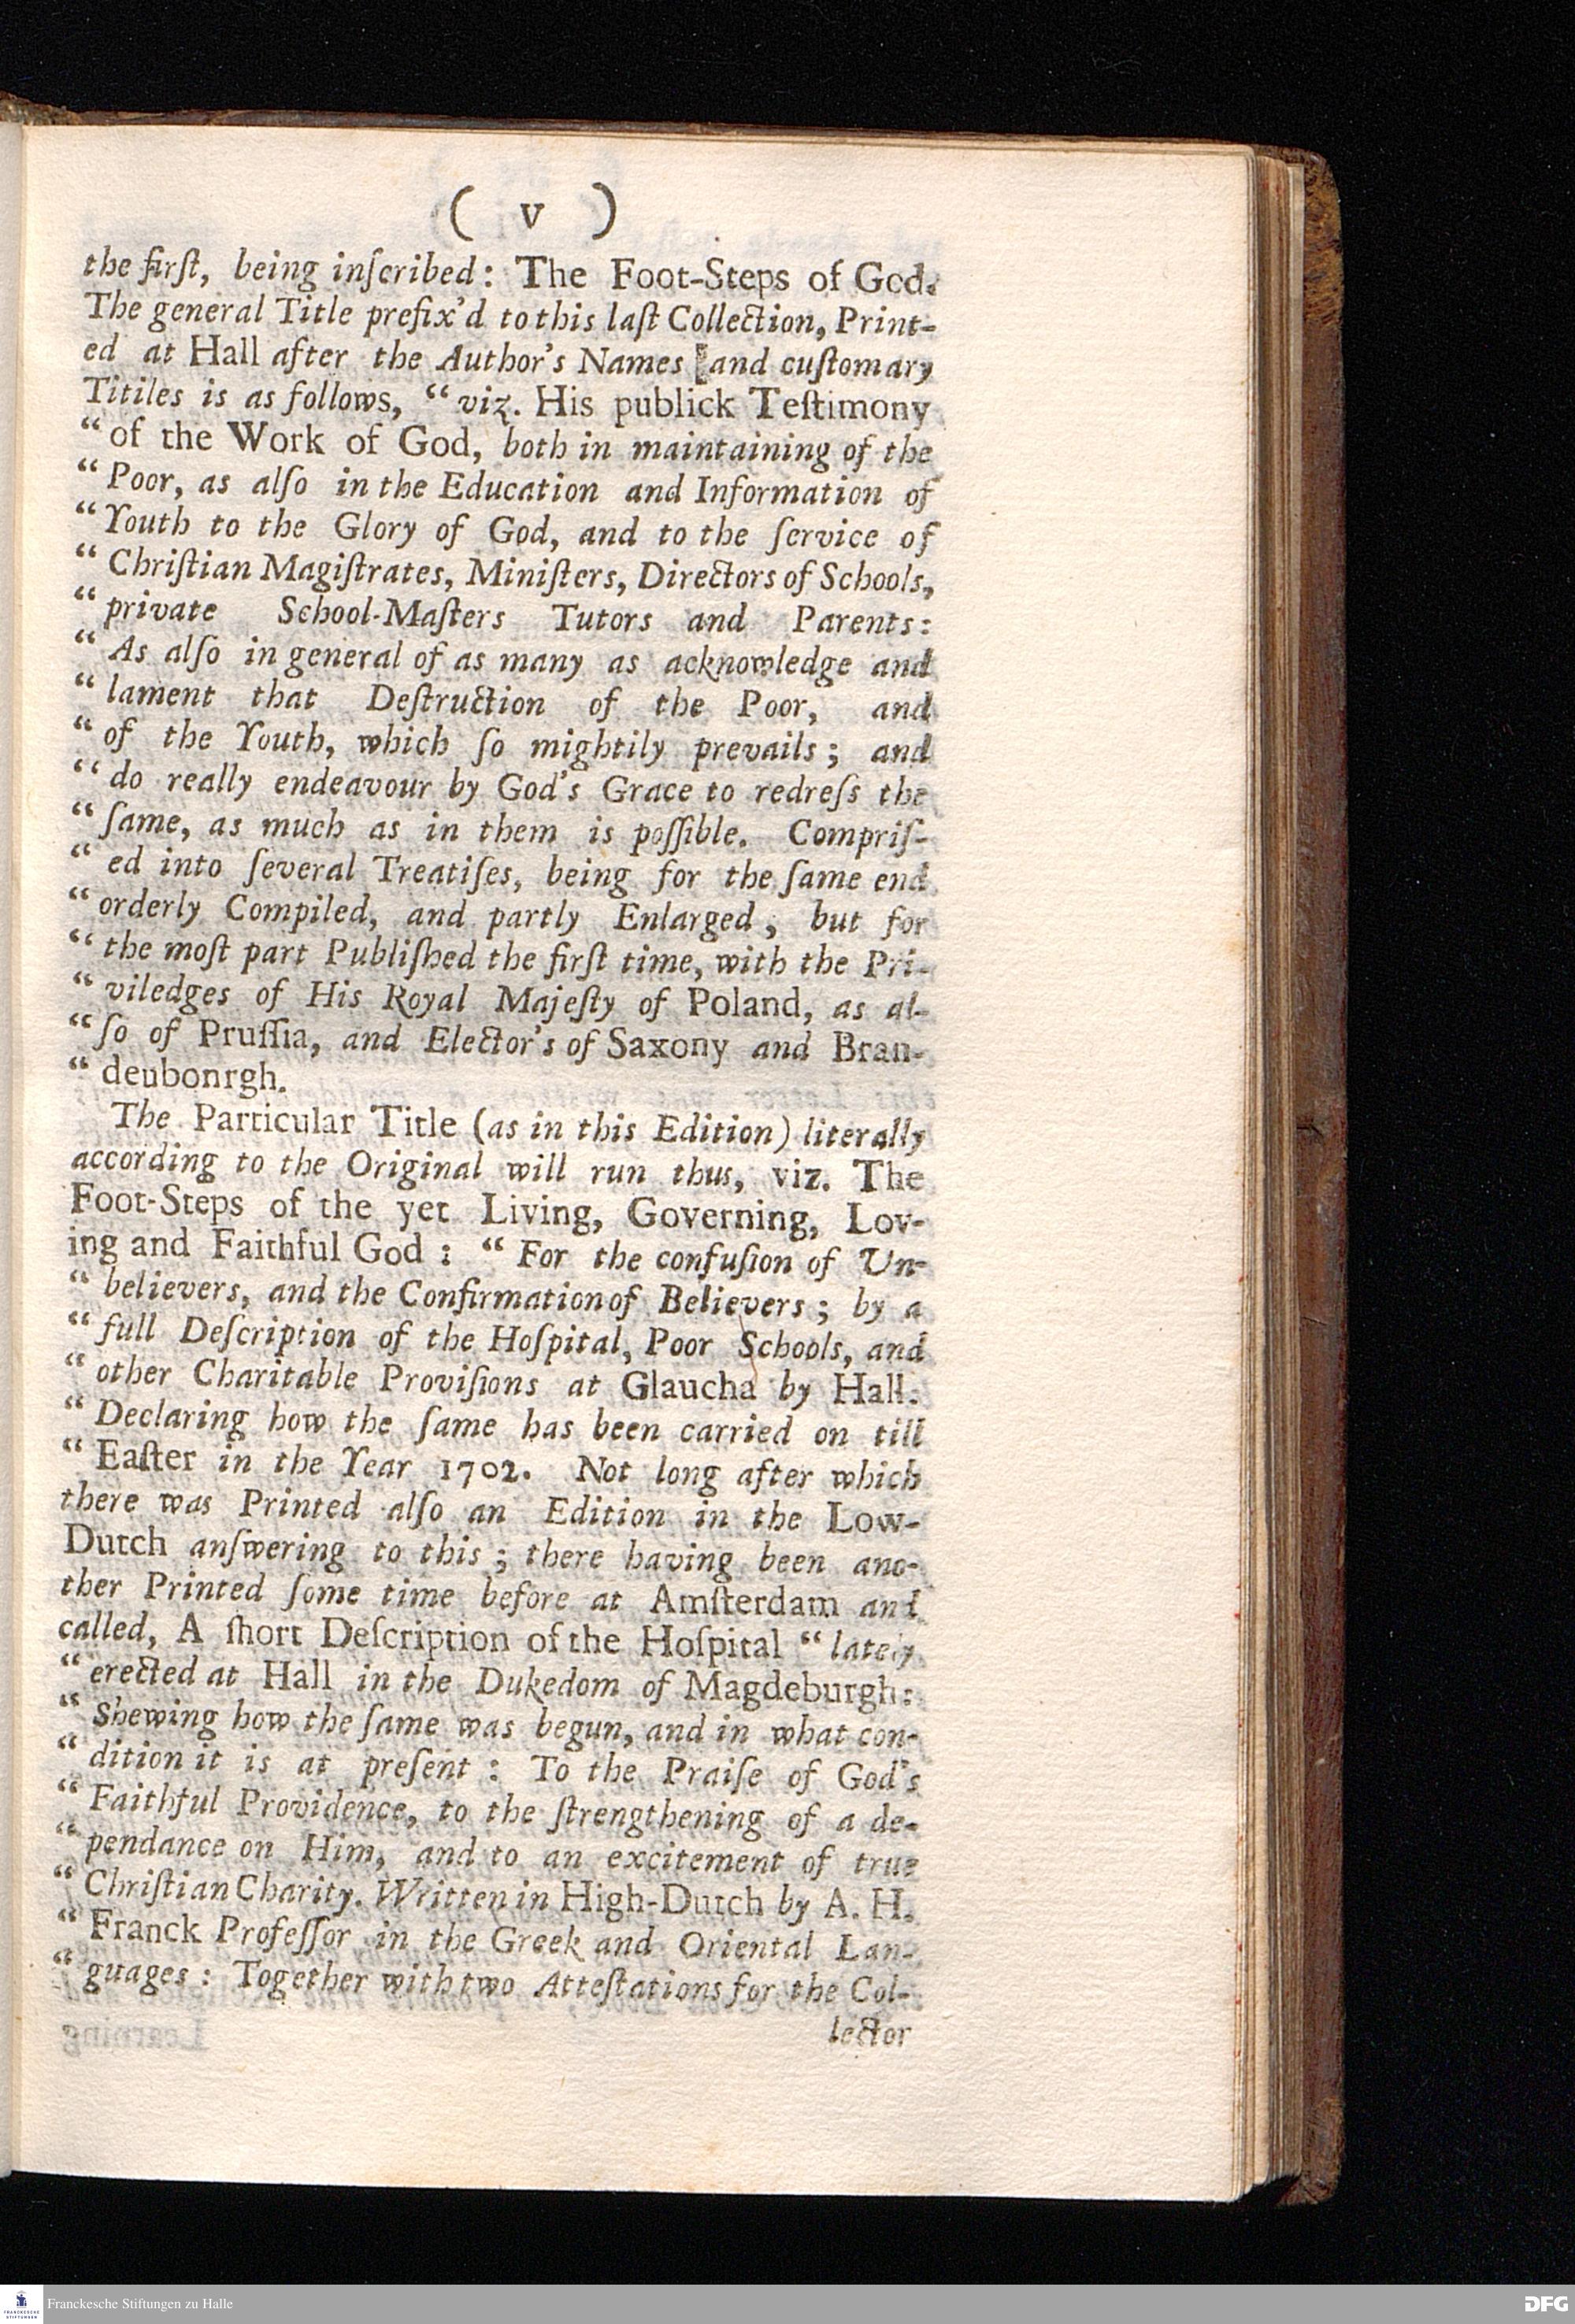 ( v )
the firſt, being inſcribed: The Foot-Steps of God.
The general Title prefix'd to this laſt Collection, Print-
ed at Hall after the Author's Names [and cuſtomary
Titiles is as follows, “ viz. His publick Teſtimony
“ of the Work of God, both in maintaining of the
“ Poor, as alſo in the Education and Information of
“ Youth to the Glory of God, and to the ſervice of
“ Chriſtian Magiſtrates, Miniſters, Directors of Schools,
“ private School-Maſters Tutors and Parents:
“ As alſo in general of as many as acknowledge and
“ lament that Deſtruction of the Poor, and
“ of the Youth, which ſo mightily prevails; and
“ do really endeavour by God's Grace to redreſs the
“ ſame, as much as in them is poſſible. Compriſ-
“ ed into ſeveral Treatiſes, being for the ſame end
“ orderly Compiled, and partly Enlarged, but for
“ the moſt part Publiſhed the firſt time, with the Pri-
“ viledges of His Royal Majeſty of Poland, as al-
“ ſo of Pruſſia, and Elector's of Saxony and Bran-
“ deubonrgh.
The Particular Title (as in this Edition) literally
according to the Original will run thus, viz. The
Foot-Steps of the yet Living, Governing, Lov-
ing and Faithful God: “ For the confuſion of Un-
“ believers, and the Confirmation of Believers; by a
“ full Deſcription of the Hoſpital, Poor Schools, and
“ other Charitable Proviſions at Glaucha by Hall:
“ Declaring how the ſame has been carried on till
“ Eaſter in the Year 1702. Not long after which
there was Printed alſo an Edition in the Low-
Dutch anſwering to this; there having been ano-
ther Printed ſome time before at Amſterdam and
called, A ſhort Deſcription of the Hoſpital “ lately
“ erected at Hall in the Dukedom of Magdeburgh:
“ Shewing how the ſame was begun, and in what con-
“ dition it is at preſent: To the Praiſe of God's
“ Faithful Providence, to the ſtrengthening of a de-
“ pendance on Him, and to an excitement of true
“ Chriſtian Charity. Written in High-Dutch by A. H.
“ Franck Profeſſor in the Greek and Oriental Lan-
“ guages: Together with two Atteſtations for the Col-
lector
Franckesche Stiftungen zu Halle
DFG